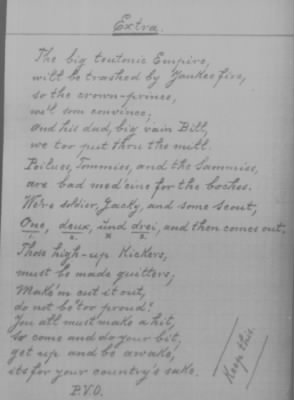 Extra.
The big teutonic Empire,
will be trashed by Yankee fire,
so the crown-prince,
we'll soon convince;
And his dad, big vain Bill,
we too put thru the mill.
Poilues, Tommies, and the Sammies,
are bad med'cine for the boches.
We're soldier, Jacky, and some scout,
One, deux, und drei, and then comes out.
1. 2. x 3.
Those high-up Kickers,
must be made quitters,
Make'm cut it out,
do not be too proud!
You all must make a hit,
so come and do your bit,
get up and be awake,
its for your country's sake.
P.V.O.
Keep this.